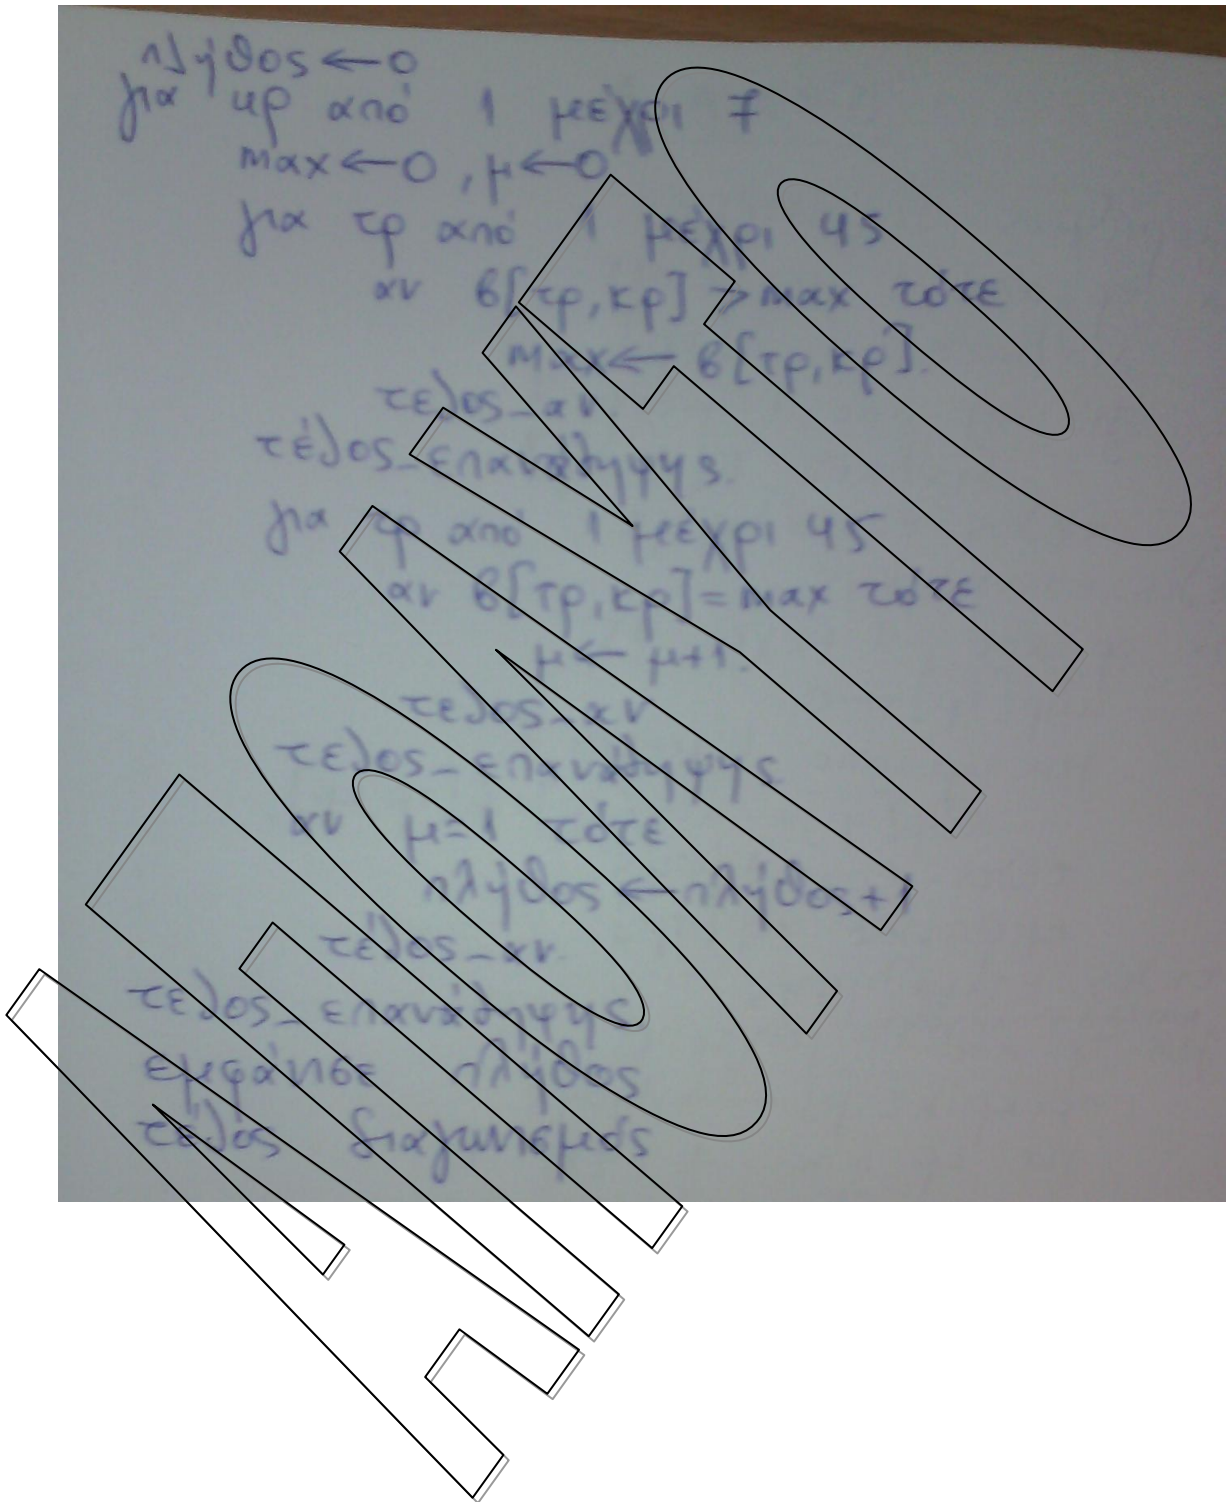 πλήθος ← 0
για κρ από 1 μέχρι 7
max ← 0 , μ ← 0
για τρ από 1 μέχρι 45
αν β[τρ,κρ] > max τότε
max ← β[τρ,κρ].
τελος_αν.
τέλος_επανάληψης.
για τρ από 1 μέχρι 45
αν β[τρ,κρ] = max τότε
μ ← μ+1.
τελος_αν
τελος_επανάληψης
αν μ=1 τότε
πλήθος ← πλήθος+1
τέλος_αν.
τελος_επανάληψης
εμφάνισε πλήθος
τέλος διαγωνισμός
ΑΠΟΛΥΤΟ